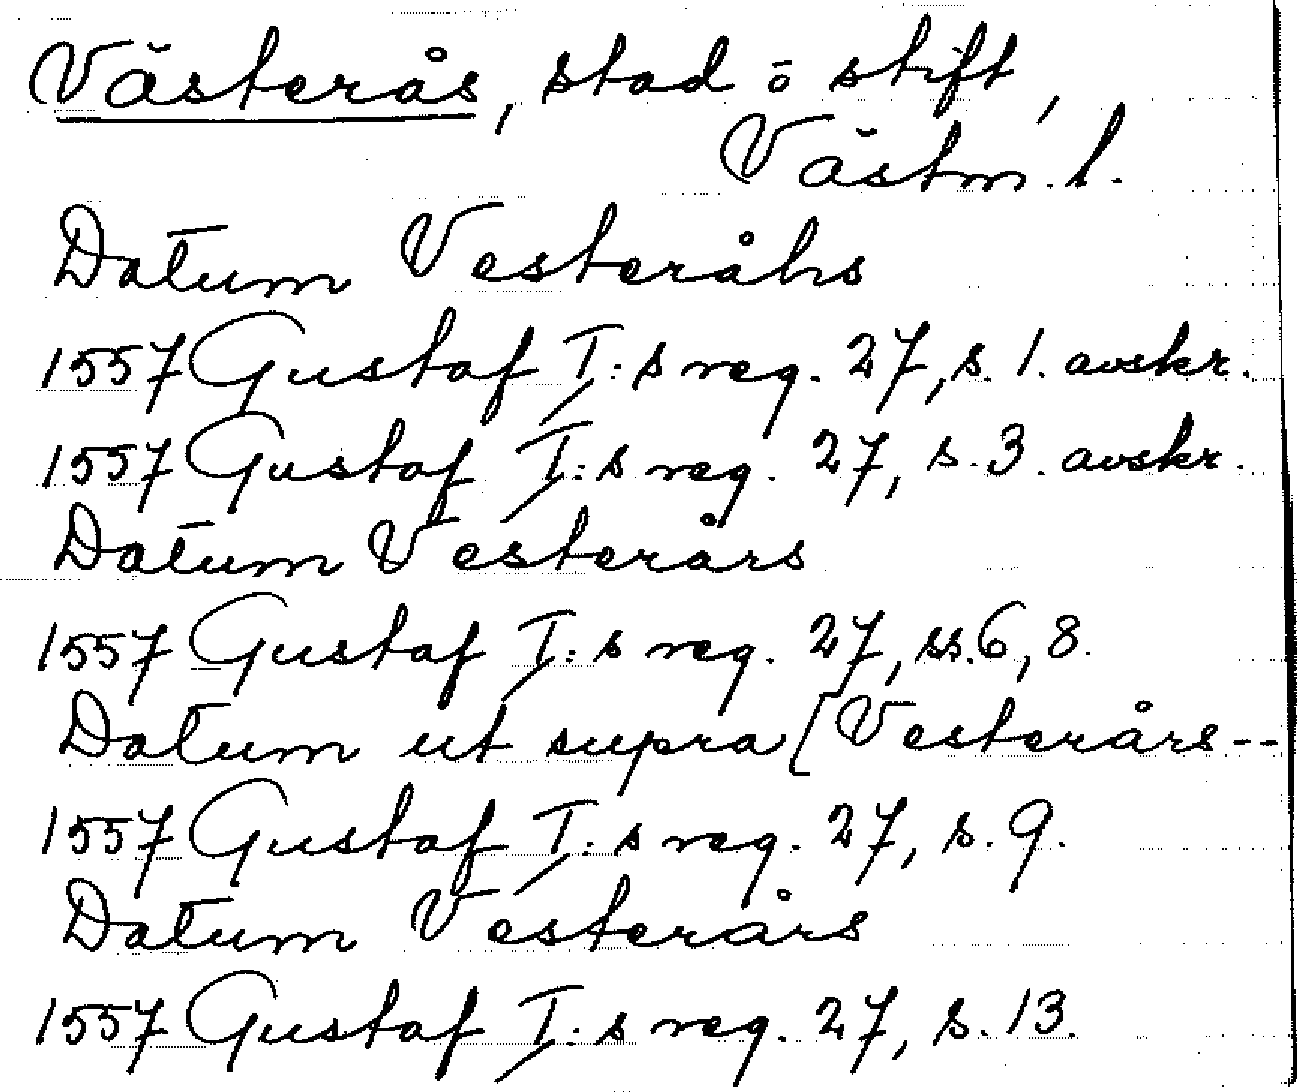 Västerås, stad o stift,
Västm. l.
Datum Vesteråhs
1557 Gustaf I:s reg. 27, s. 1. avskr.
1557 Gustaf I:s reg. 27, s. 3. avskr.
Datum Vesterårs
1557 Gustaf I:s reg. 27, ss. 6, 8.
Datum ut supra [Vesterårs--
1557 Gustaf I:s reg. 27, s. 9.
Datum Vesterårs
1557 Gustaf I:s reg. 27, s. 13.